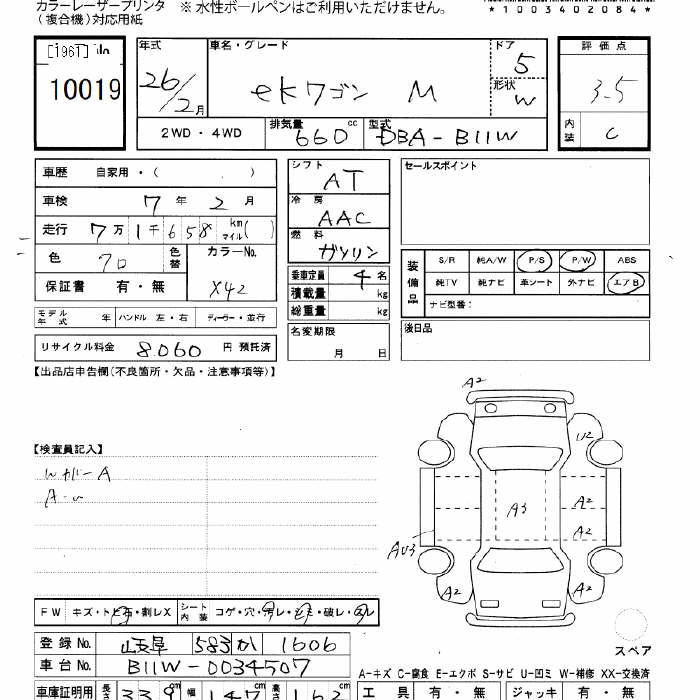 カラーレーザープリンタ ※ 水性ボールペンはご利用いただけません。
(複合機)対応用紙
*1003402084*
10019
年式 26/2月
車名・グレード ekワゴン M
ドア 5
形状 W
評価点 3.5
内装 C
2WD・4WD
排気量 660 cc
型式 DBA-B11W
車歴 自家用・( )
車検 7年2月
走行 7万1千658 km マイル( )
色 クロ 色替 カラーNo. X42
保証書 有・無
シフト AT
冷房 AAC
燃料 ガソリン
乗車定員 4名
積載量 kg
総重量 kg
モデル年式 年 ハンドル 左・右 ディーラー・並行
リサイクル料金 8,060 円 預託済
名変期限 月 日
セールスポイント
装備品
S/R 純A/W P/S P/W ABS
純TV 純ナビ 革シート 外ナビ エアB
ナビ型番:
後日品
【出品店申告欄(不良箇所・欠品・注意事項等)】
【検査員記入】
A2
U2
A3
A2
A2
AU3
A2
A2
スペア
FW キズ・トビ石・割レX
シート内装 コゲ・穴・汚レ・シミ・破レ・スレ
登録No. 岐阜 583 か 1606
車台No. B11W-0034507
A-キズ C-腐食 E-エクボ S-サビ U-凹ミ W-補修 XX-交換済
車庫証明用 長さ 339 cm 幅 147 cm 高さ 162 cm
工具 有・無 ジャッキ 有・無